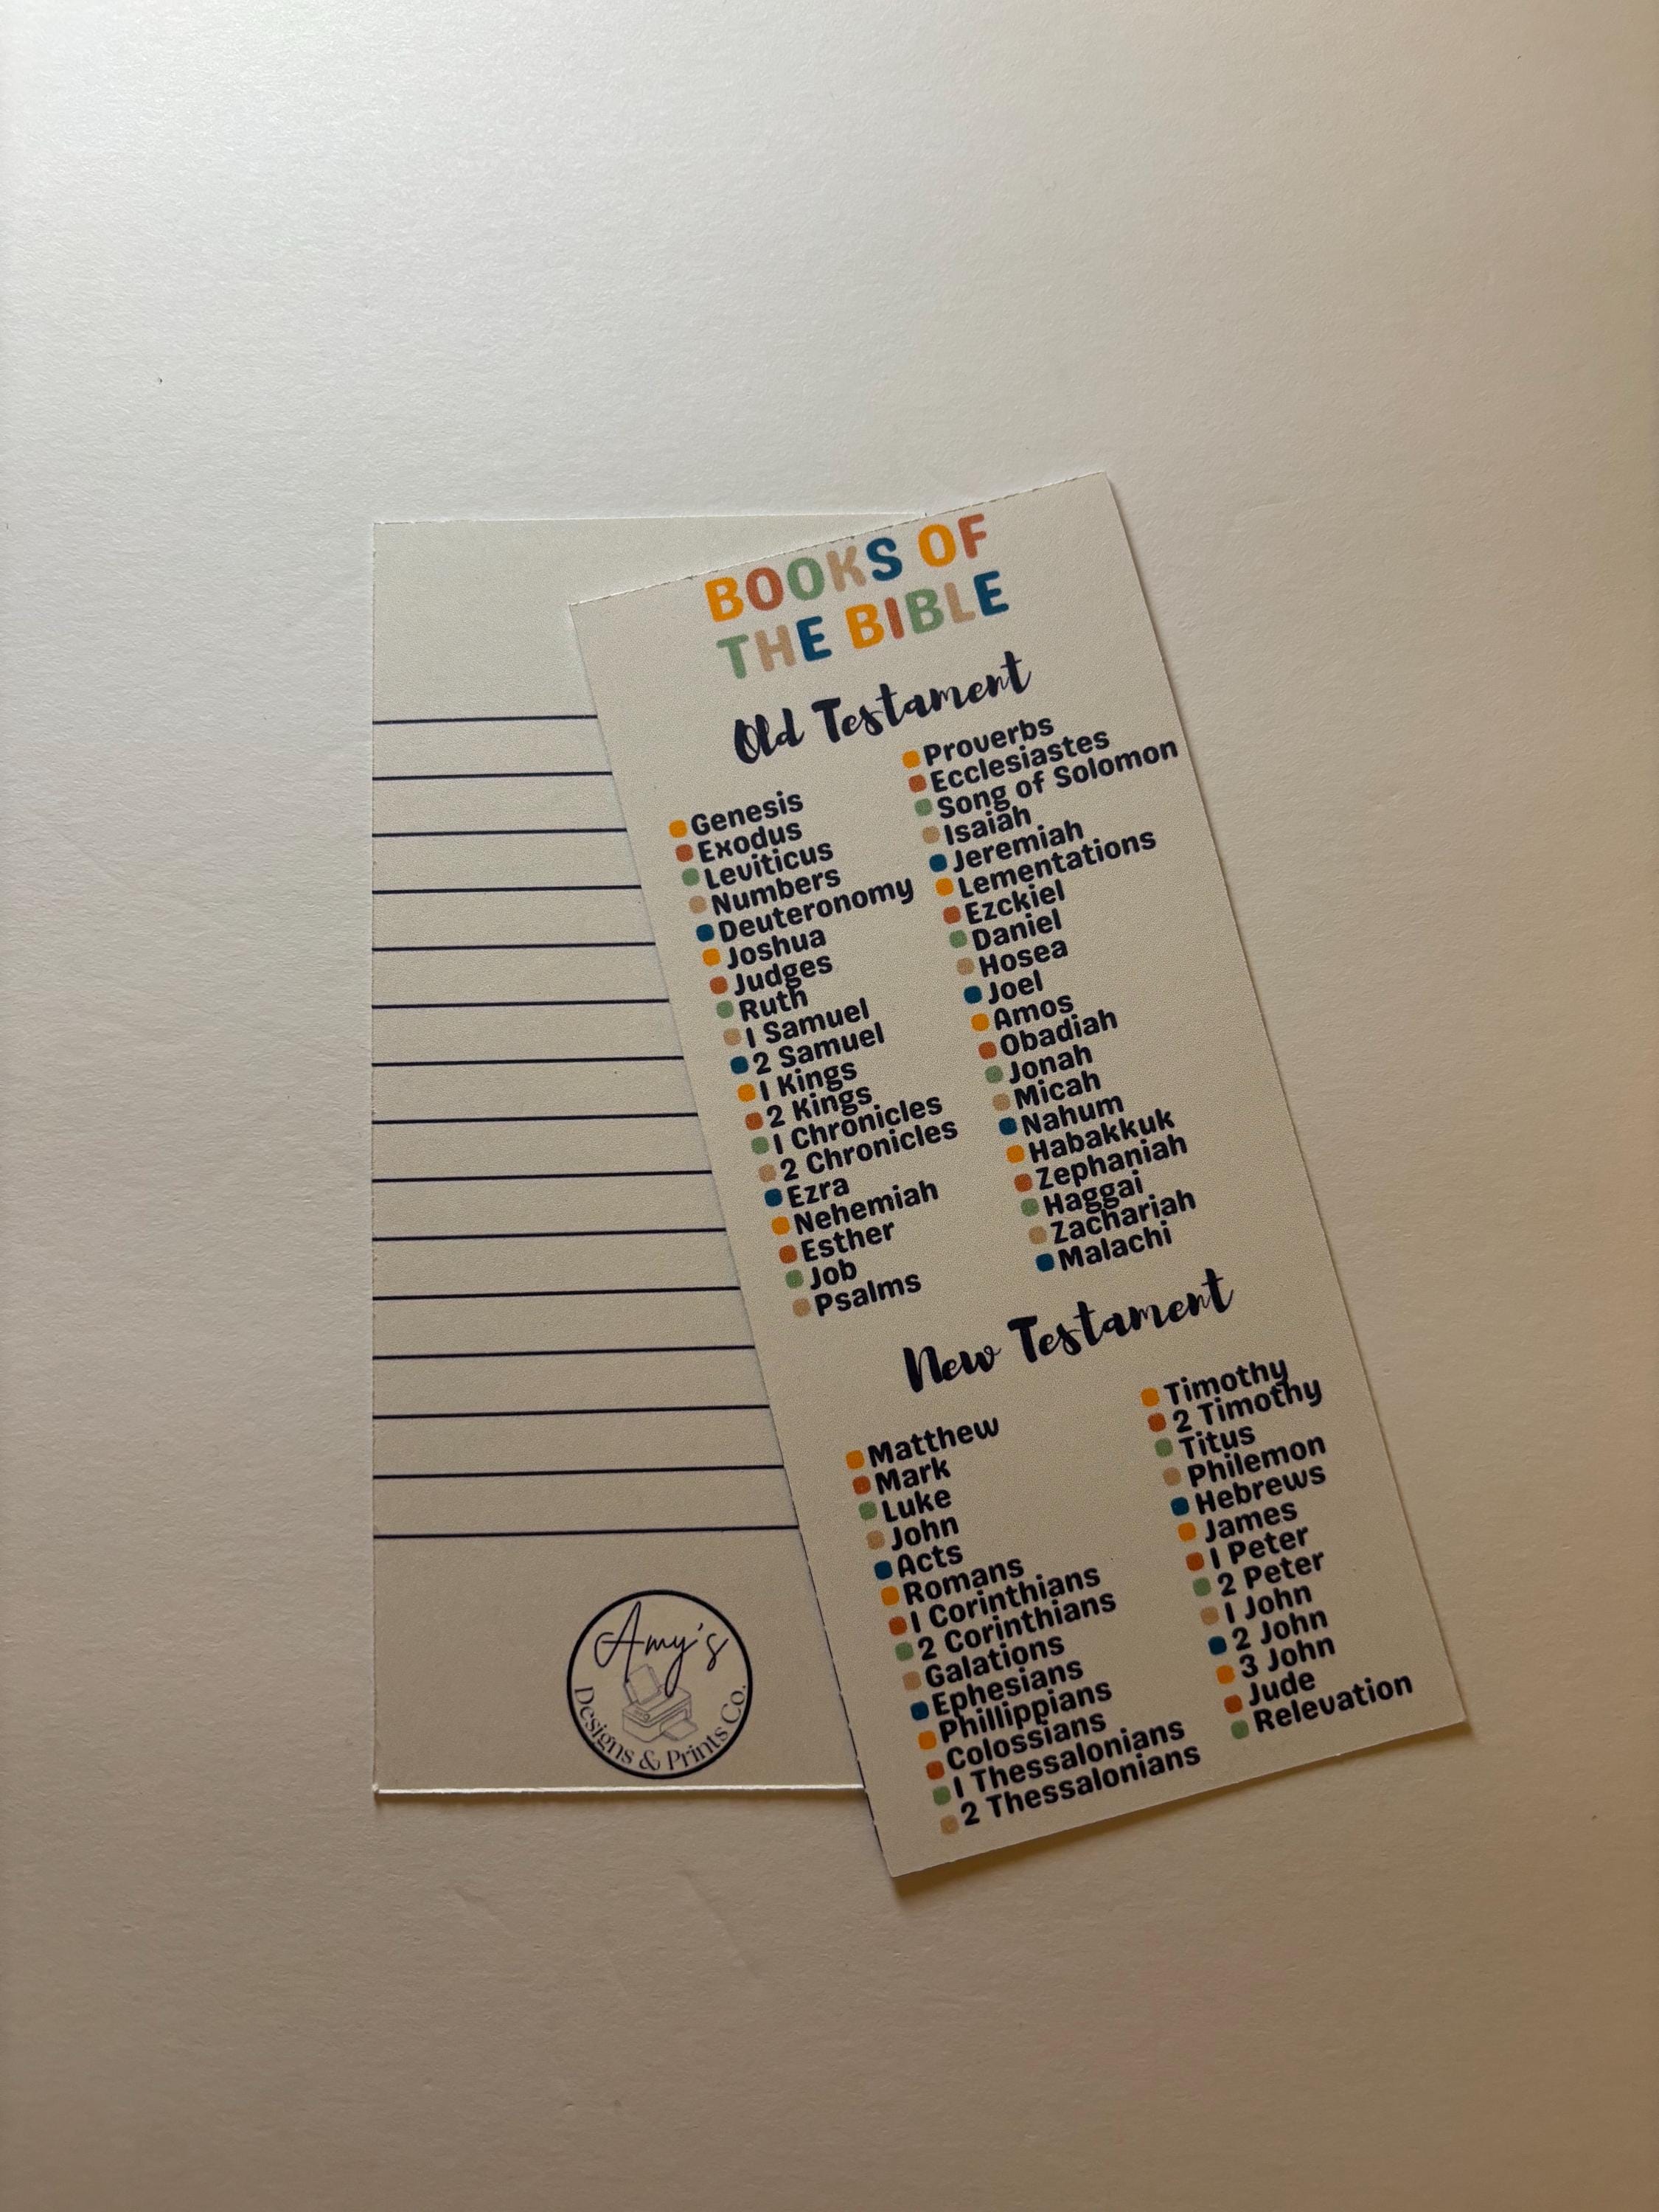 BOOKS OF
THE BIBLE
Old Testament
Genesis
Exodus
Leviticus
Numbers
Deuteronomy
Joshua
Judges
Ruth
1 Samuel
2 Samuel
1 Kings
2 Kings
1 Chronicles
2 Chronicles
Ezra
Nehemiah
Esther
Job
Psalms
Proverbs
Ecclesiastes
Song of Solomon
Isaiah
Jeremiah
Lementations
Ezckiel
Daniel
Hosea
Joel
Amos
Obadiah
Jonah
Micah
Nahum
Habakkuk
Zephaniah
Haggai
Zachariah
Malachi
New Testament
Matthew
Mark
Luke
John
Acts
Romans
1 Corinthians
2 Corinthians
Galations
Ephesians
Phillippians
Colossians
1 Thessalonians
2 Thessalonians
Timothy
2 Timothy
Titus
Philemon
Hebrews
James
1 Peter
2 Peter
1 John
2 John
3 John
Jude
Relevation
Amy's
Designs & Prints Co.